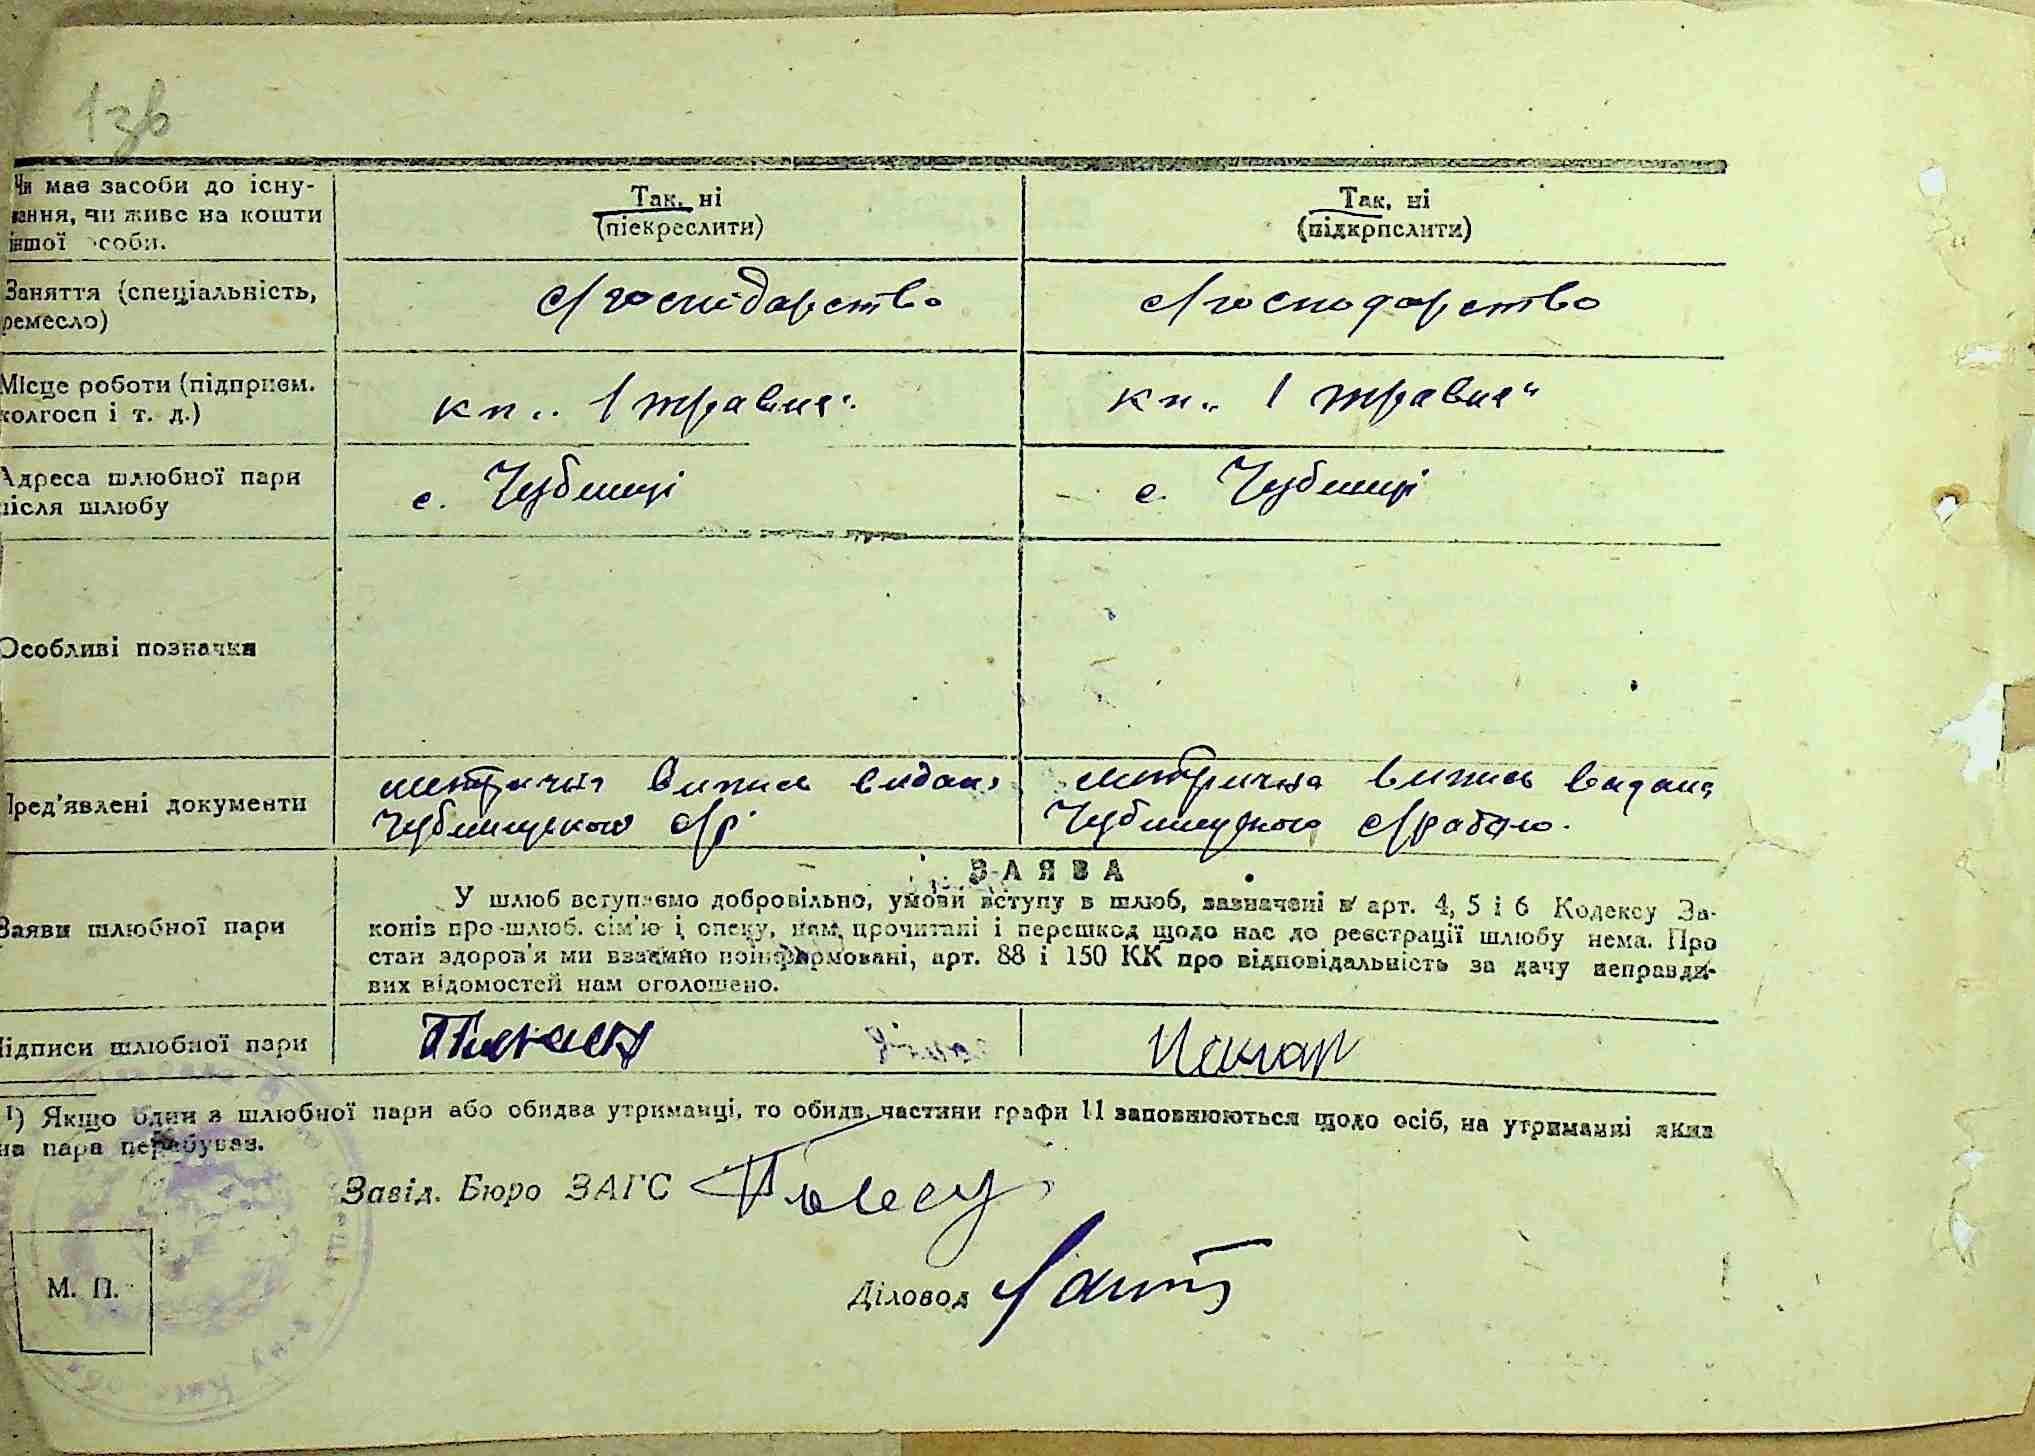 1зв
Чи має засоби до існу-
вання, чи живе на кошти
іншої особи.
Так, ні
(піекреслити)
Так, ні
(підкрпслити)
Заняття (спеціальність,
ремесло)
с/господарство
с/господарство
Місце роботи (підприєм.
колгосп і т. д.)
кп „ 1 травня"
кп „ 1 травня"
Адреса шлюбної пари
після шлюбу
с. Чубинці
с. Чубинці
Особливі позначки
Пред'явлені документи
метрична випись видана
Чубинцского с/р
метрична випись видана
Чубинцского с/радою.
Заяви шлюбної пари
ЗАЯВА
У шлюб вступаємо добровільно, умови вступу в шлюб, зазначені в арт. 4, 5 і 6 Кодексу За-
конів про шлюб. сім'ю і опеку, нам прочитані і перешкод щодо нас до реєстрації шлюбу нема. Про
стан здоров'я ми взаємно поінформовані, арт. 88 і 150 КК про відповідальність за дачу неправди-
вих відомостей нам оголошено.
Підписи шлюбної пари
1) Якщо один з шлюбної пари або обидва утриманці, то обидв. частини графи 11 заповнюються щодо осіб, на утриманні яких
на пара перебував.
Завід. Бюро ЗАГС
М. П.
Діловод